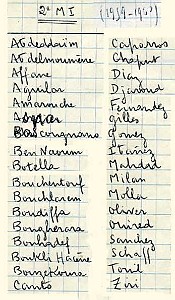 2e M I (1959-1960)
Abdeddaïm
Abdelmoumène
Affane
Aguilar
Amarouche
Aspar
Bas
Ben Naoum
Botella
Bouchentouf
Bouchlarem
Boudiffa
Bougherara
Bouhadef
Boukli Hacène
Bourekoua
Canto
Caparros
Chaput
Diaz
Djaroud
Fernandez
Gilles
Gomez
Ibañez
Mahdad
Milan
Molla
Oliver
Ouired
Sanchez
Schaff
Toril
Ziri